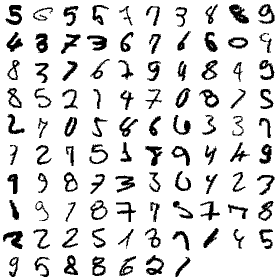 5 5 5 6 7 7 3 8 8 9
4 3 7 3 6 7 6 6 0 9
8 3 7 6 7 9 4 8 4 9
8 5 2 1 4 7 0 8 7 5
2 7 0 5 8 6 6 3 3 7
7 2 7 5 1 8 9 4 4 9
1 9 8 7 3 3 0 4 2 7
1 9 7 8 7 7 5 7 7 8
2 2 2 5 1 8 7 1 4 5
9 5 8 8 6 5 2 1